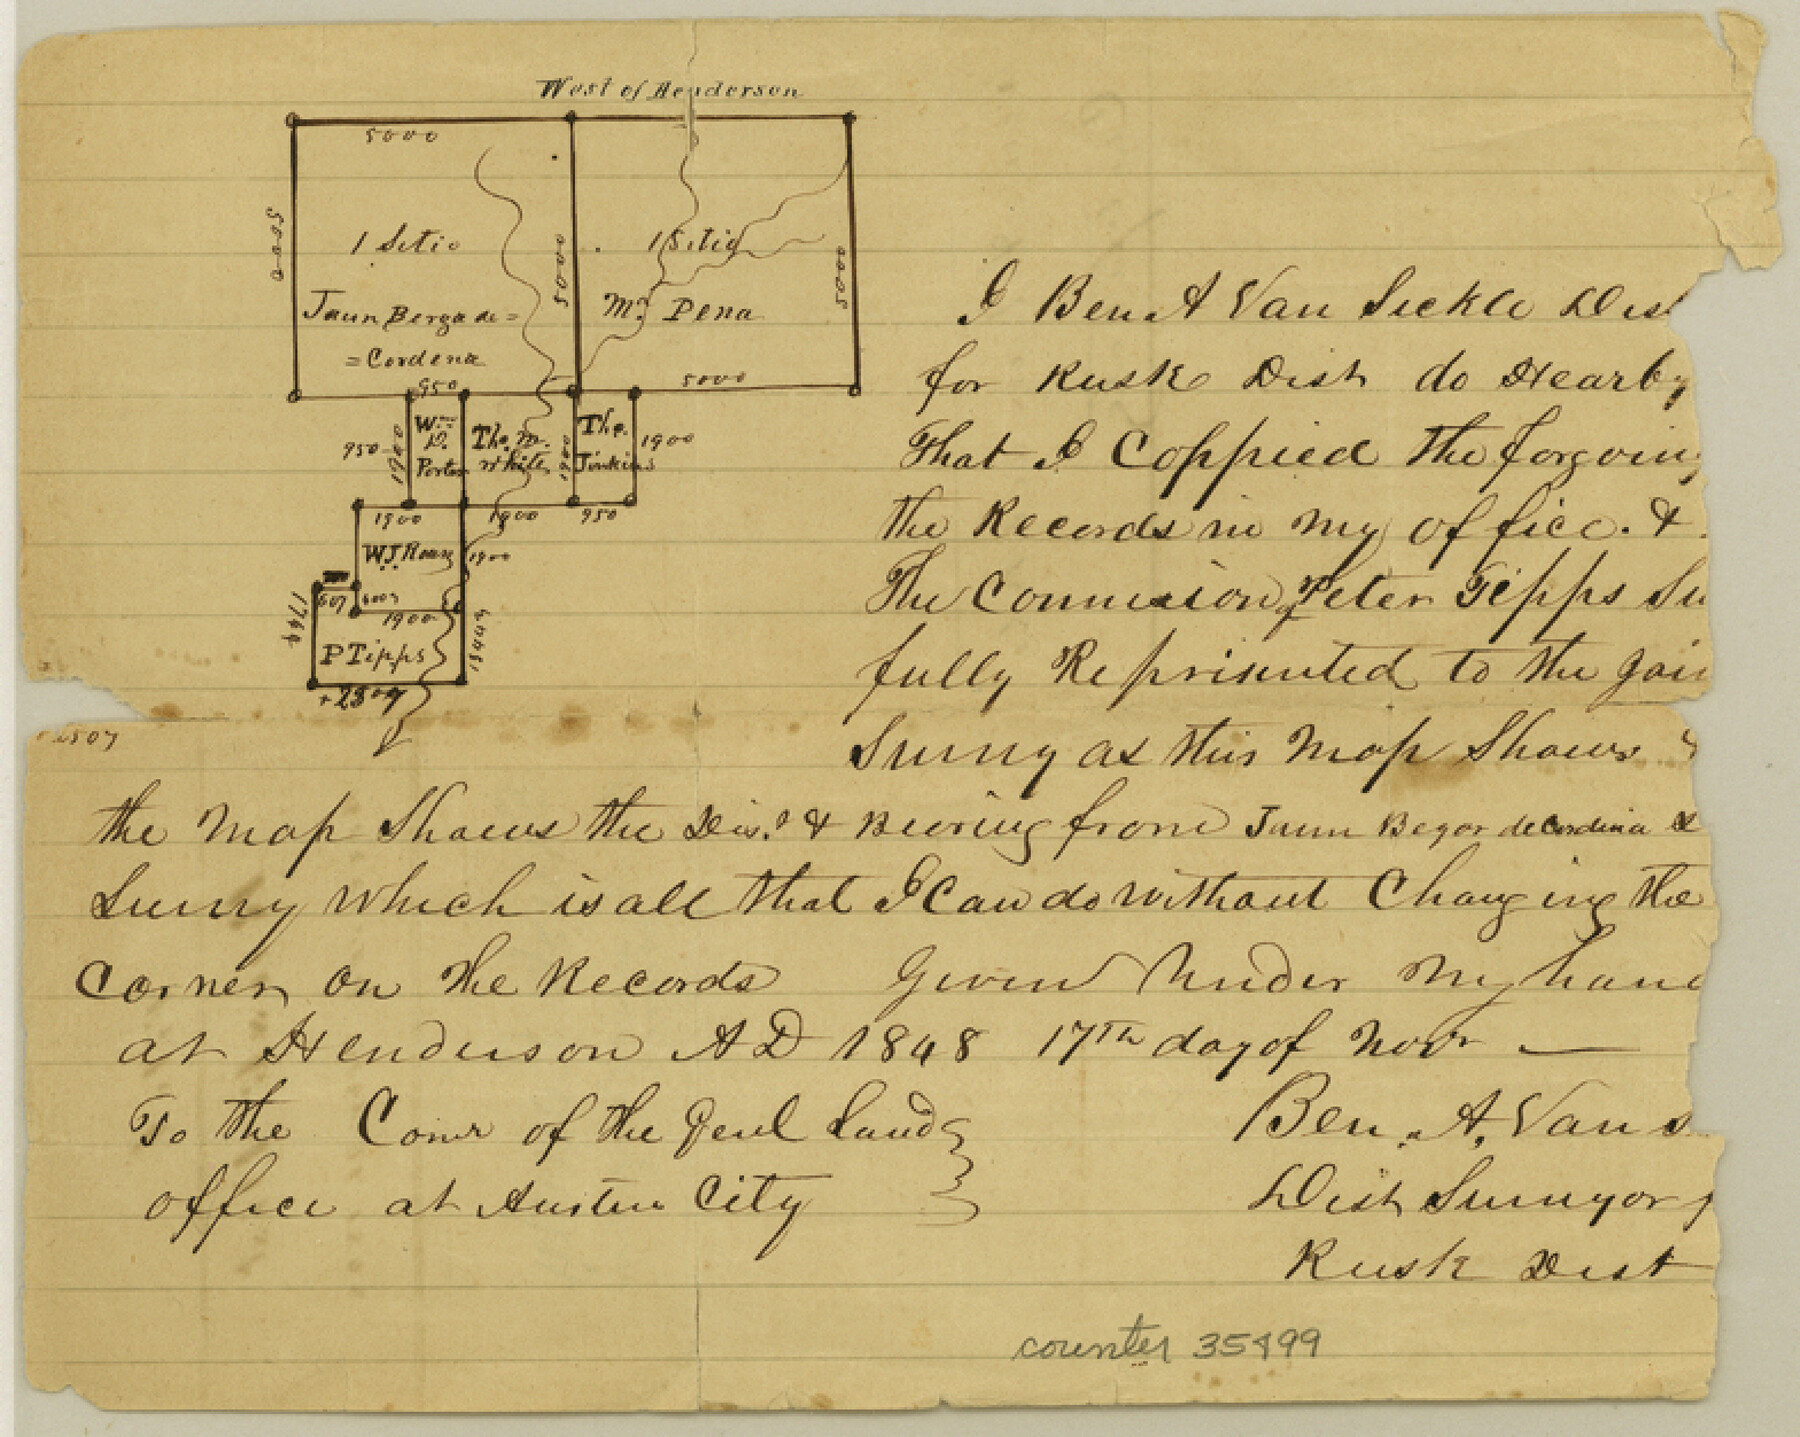 West of Henderson
5000
5000
1 Sitio
5000
1 Sitio
5000
Jaun Berga de=
=Cordena
M. Pena
950
5000
W
P.
Porter
Tho. M.
White
The.
Jinkins
950
1900
1900
1900
1900
1900
950
W.J. Roan
1900
607
1900
1744
P Tipps
+2507
2507
I Ben A Van Sickle Dist
for Rusk Dist do Hearby
That I Coppied the forgoing
the Records in my office. &
The Connexion Peter Tipps Su
fully Reprisented to the Join
Survy as this Map Shows &
the Map Shows the Dis. & Bearing from Jaun Begar de Cordina &
Survy which is all that I Can do without Changing the
Corner on the Records Given Under My hand
at Henderson AD 1848 17th day of Novr
To the Comr of the Genl Land
office at Austin City
Ben. A. Van S
Dist Survyor f
Rusk Dist
counter 35499